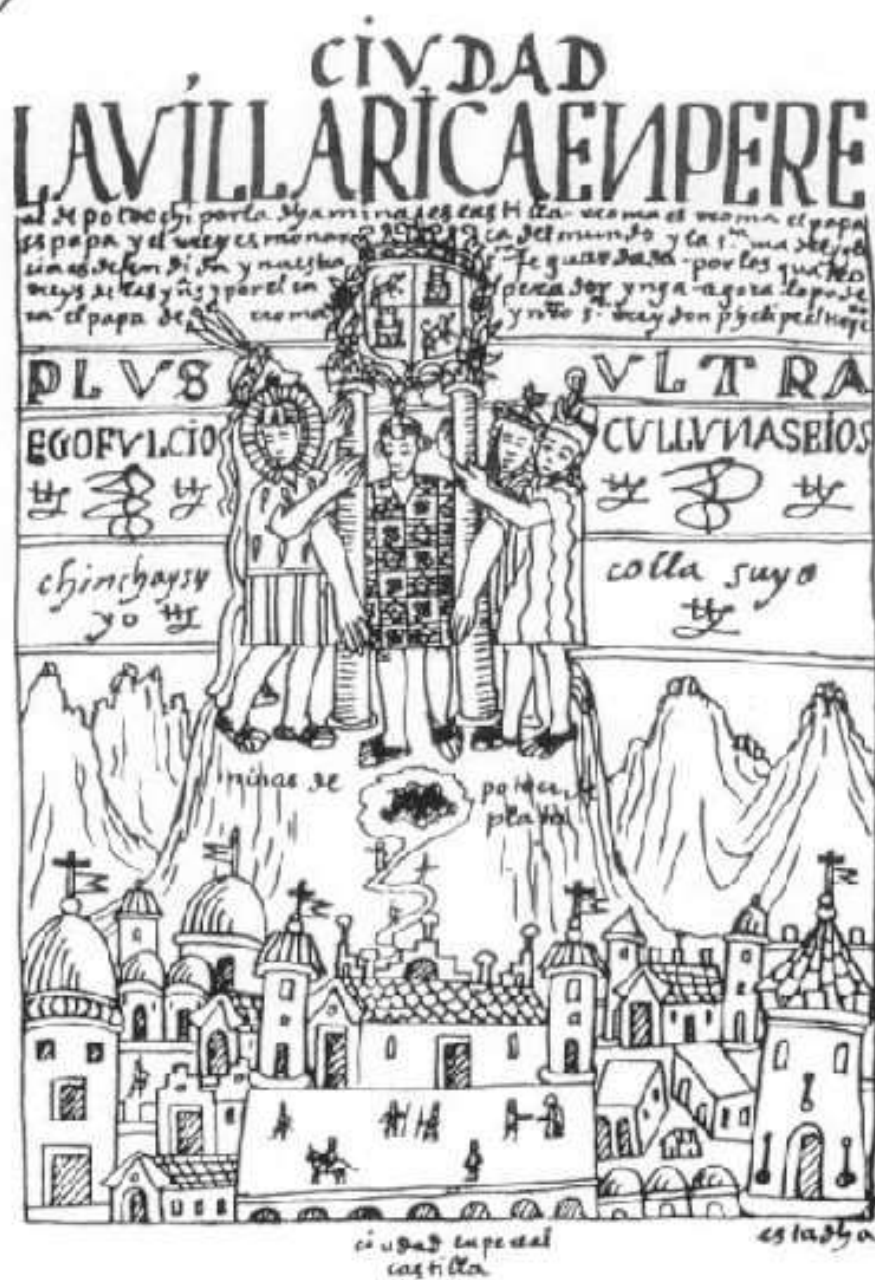 CIVDAD
LAVÍLLARÍCAENPERE
al de potocchi por la dha mina es castilla - rroma es rroma el papa
es papa y el rrey es monarca del mundo y la s.ta ma
defendida y nuestra fe guardada - por los quatro
rreys de las yñs y por el enperador ynga - agora lo pode
ra el papa de rroma y nro s.r rrey don phelipe el
PLVS VLTRA
EGOFVLCIO CVLLVNASEIOS
chinchaysu
yo
colla suyo
minas de potocchi de
plata
ciudad enpereal
castilla
es la dha